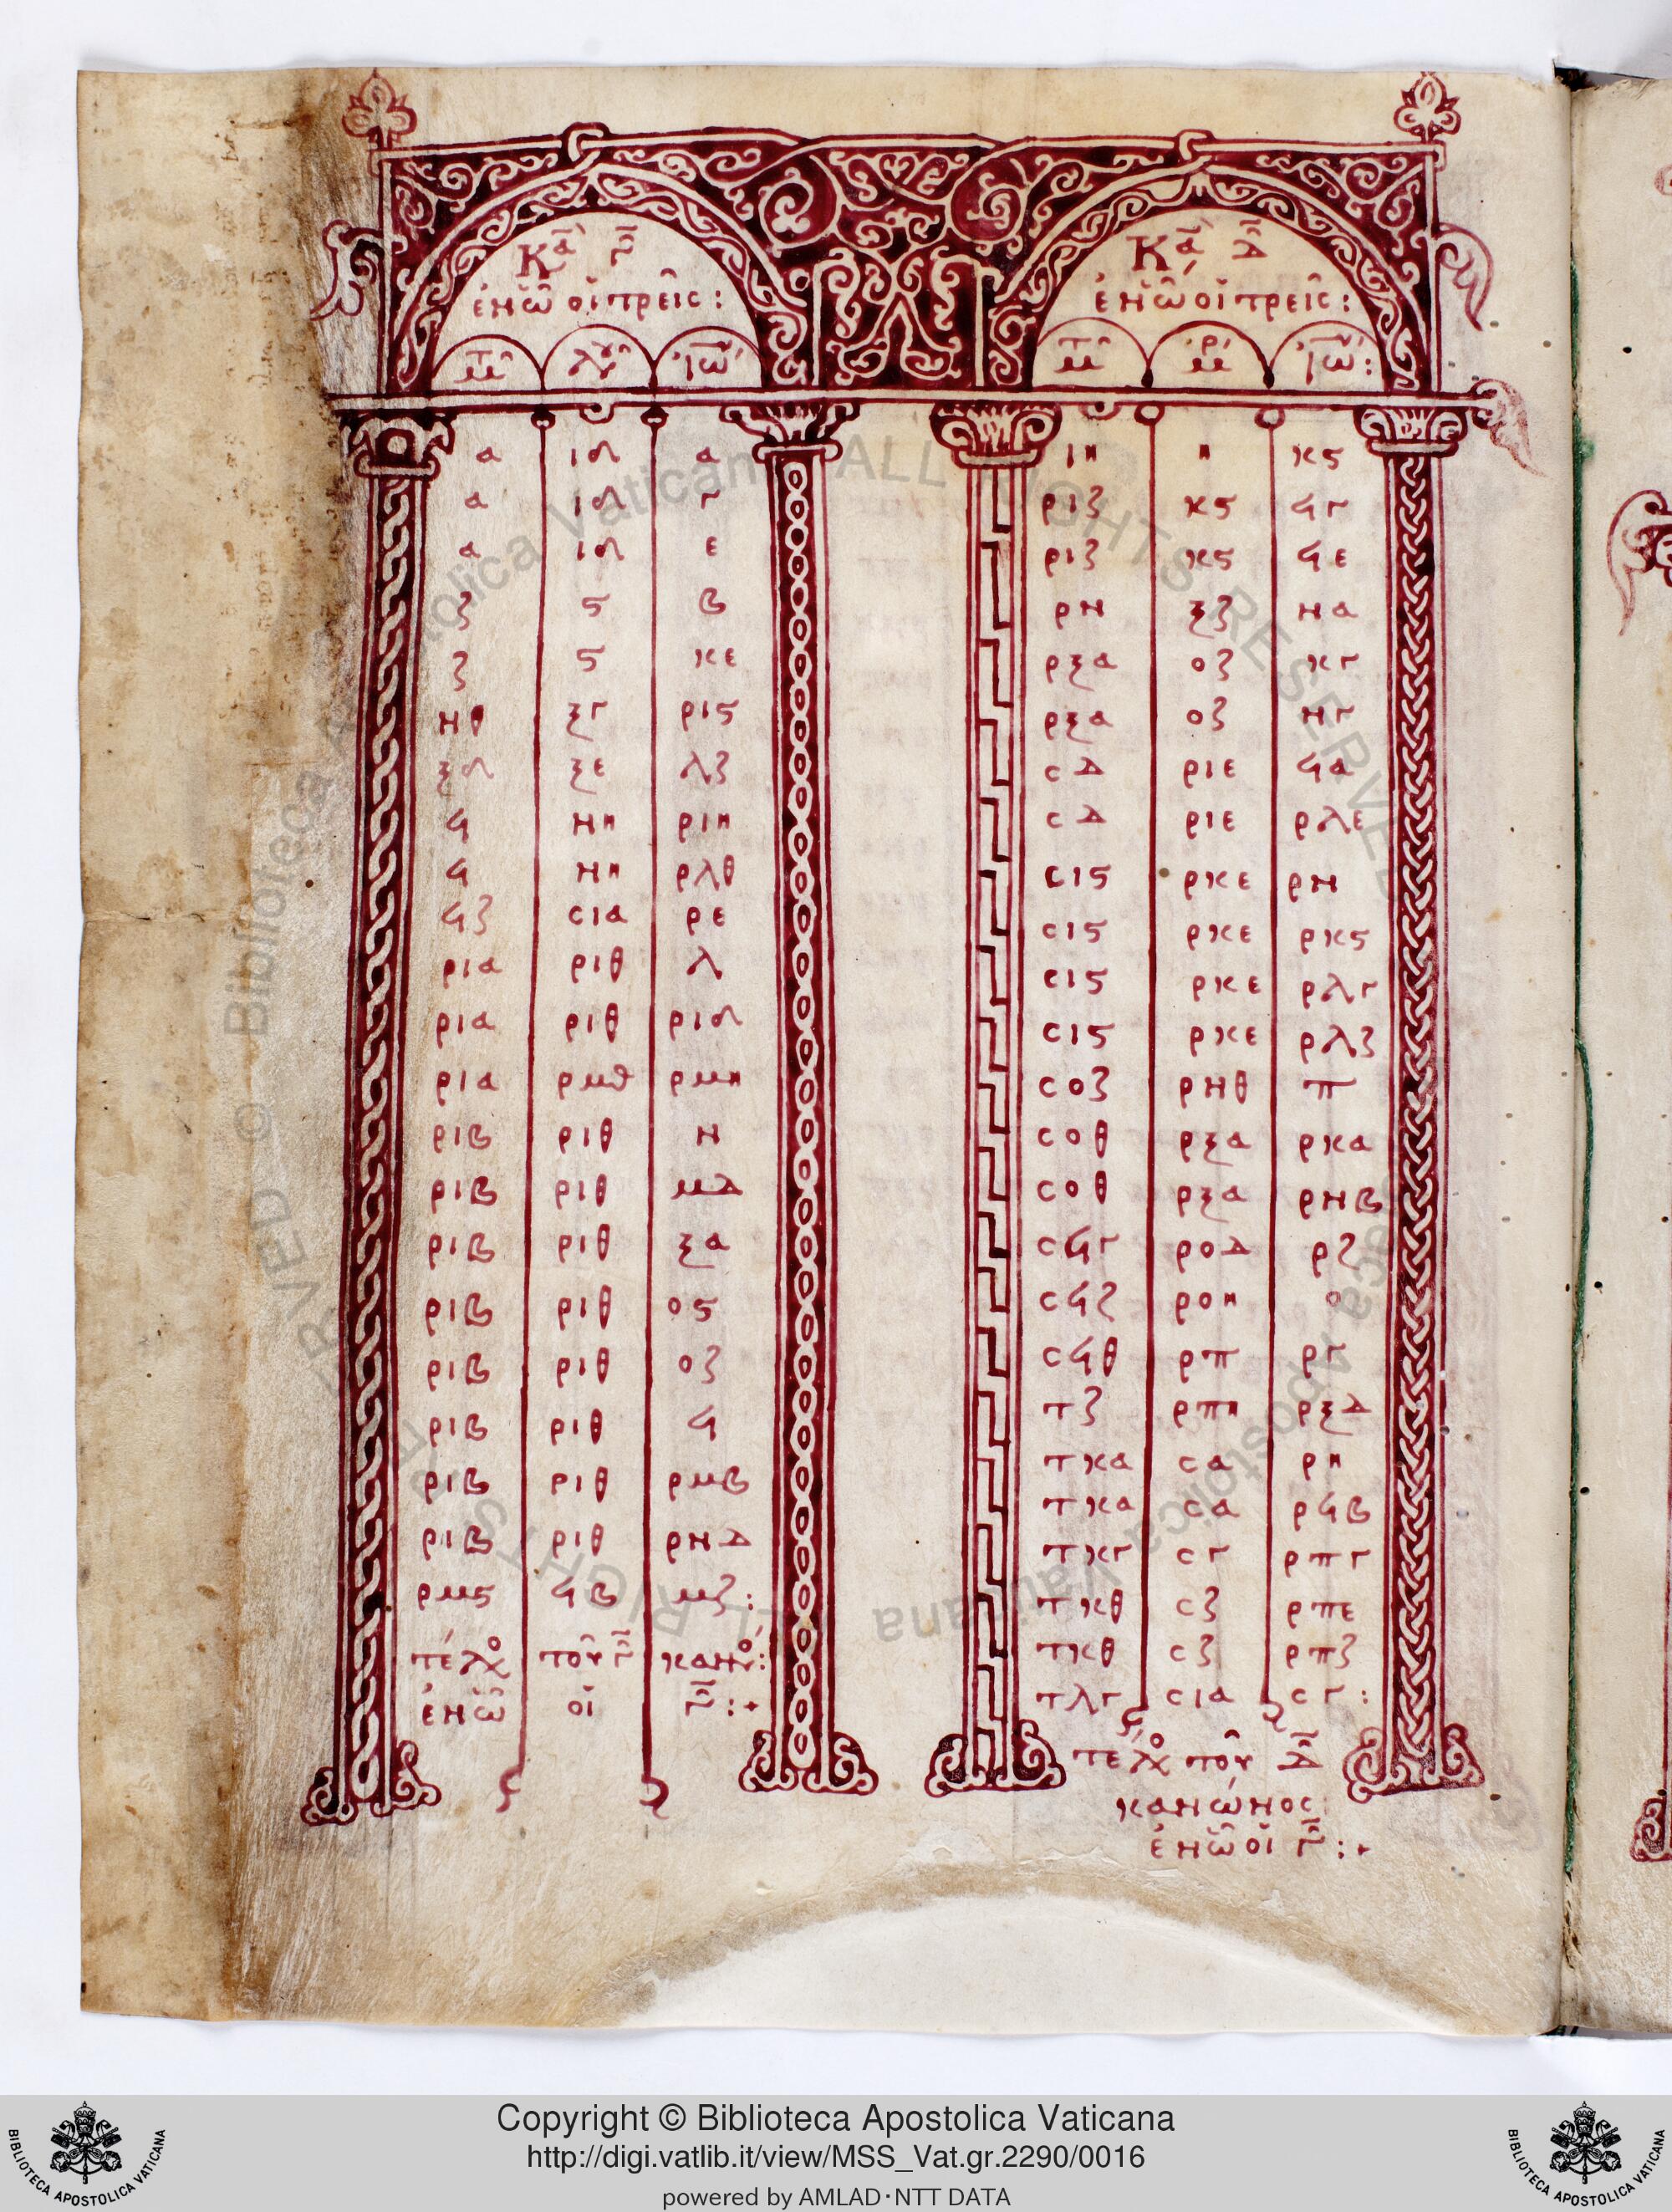 Κα̅ Γ̅
ἐν ὧ οἱ τρεις:
Μτ Λου Ἰω
α ιδ α
α ιδ γ
α ιδ ε
ζ ϛ β
ζ ϛ κε
νθ ξγ ριϛ
ξδ ξε λζ
ϟ νη ριη
ϟ νη ρλθ
ϟζ σια ρε
ρια ριθ λ
ρια ριθ ριδ
ρια ρμθ ρμη
ριβ ριθ ν
ριβ ριθ μδ
ριβ ριθ ξα
ριβ ριθ οϛ
ριβ ριθ οζ
ριβ ριθ ϟ
ριβ ριθ ρμβ
ριβ ριθ ρνδ
ρμϛ ϟβ μζ:
τέλο̅ς τοῦ γ̅ κανό:
ἐν ὧ οἱ γ̅:+
Κα̅ Δ̅
ἐν ὧ οἱ τρεῖς:
Μτ Μρ Ἰω:
ιη η κϛ
ριζ κϛ ϟγ
ριζ κϛ ϟε
ρν ξζ να
ρξα οζ κγ
ρξα οζ νγ
σδ ριε ϟα
σδ ριε ρλε
σιϛ ρκε ρν
σιϛ ρκε ρκϛ
σιϛ ρκε ρλγ
σιϛ ρκε ρλζ
σοζ ρνθ π
σοθ ρξα ρκα
σοθ ρξα ρνβ
σϟγ ροδ ρζ
σϟζ ροη ο
σϟθ ρπ ργ
τζ ρπη ρξδ
τκα σα ρη
τκα σα ρϟβ
τκγ σγ ρπγ
τκθ σζ ρπε
τκθ σζ ρπζ
τλγ σια σγ:
τέλο̅ς τοῦ δ̅
κανώνος:
ἐν ὧ οἱ γ̅:+
© Biblioteca Apostolica Vaticana ALL RIGHTS RESERVED
Copyright © Biblioteca Apostolica Vaticana
http://digi.vatlib.it/view/MSS_Vat.gr.2290/0016
powered by AMLAD·NTT DATA
BIBLIOTECA APOSTOLICA VATICANA
BIBLIOTECA APOSTOLICA VATICANA